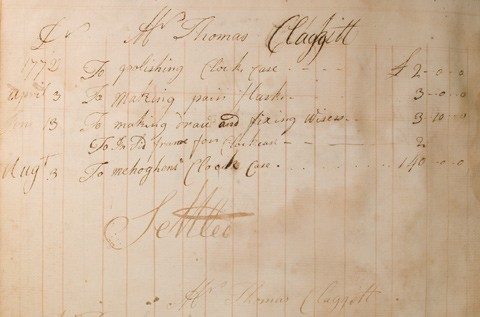 Dr Mr Thomas Claggitt
1772 To polishing Clock case £ 2-0-0
April 3 To making pair 3-0-0
13 To making and fixing wires 3-10-0
To frame for 2
Augt 3 To mehogheni Clock Case 140-0-0
Settled
Mr Thomas Claggitt